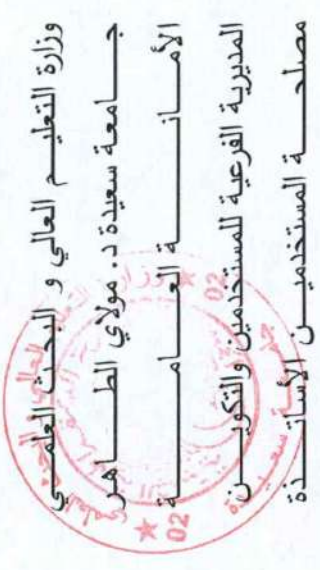 وزارة التعليم العالي و البحث العلمي
جامعة سعيدة د. مولاي الطاهر
الأمانة العامة
المديرية الفرعية للمستخدمين والتكوين
مصلحة المستخدمين الأساتذة
02
02